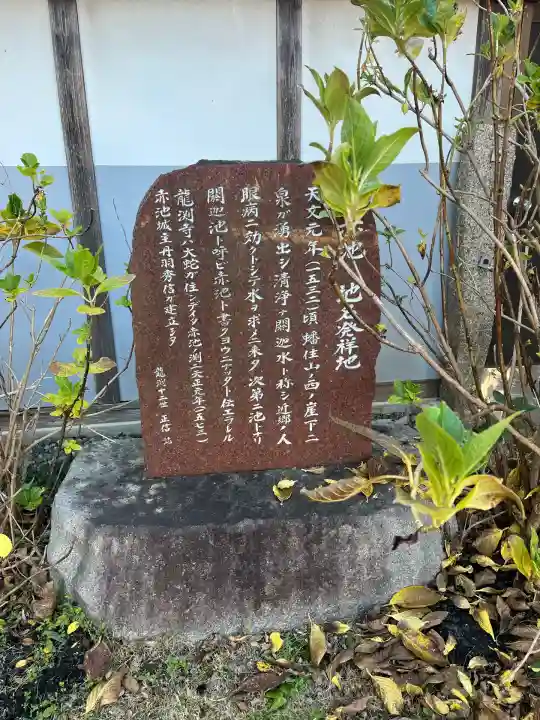 池 地名発祥地
天文元年(一五三二)頃 蟠住山ノ西ノ崖下ニ
泉ガ湧出シ清浄ナ閼迦水ト称シ近郷ノ人
眼病ニ効クトシテ水ヲ求メニ来タ 次第ニ池トナリ
閼迦池ト呼ビ赤池ト書クヨウニナッタト伝エラレル
龍渕寺ハ大蛇ガ住ンデイタ赤池ノ渕ニ天正元年(一五七三)
赤池城主丹羽秀信ガ建立シタ
龍渕十二世 正信